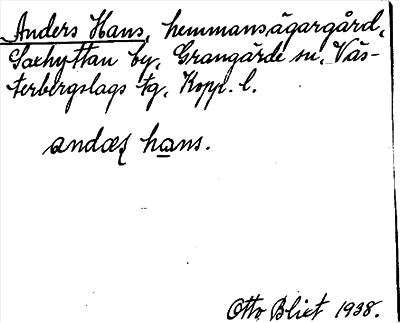 Anders Hans, hemmansägargård,
Saxhyttan by, Grangärde sn, Väs-
terbergslags tg, Kopp. l.
andæʃ hans.
Otto Blixt 1938.